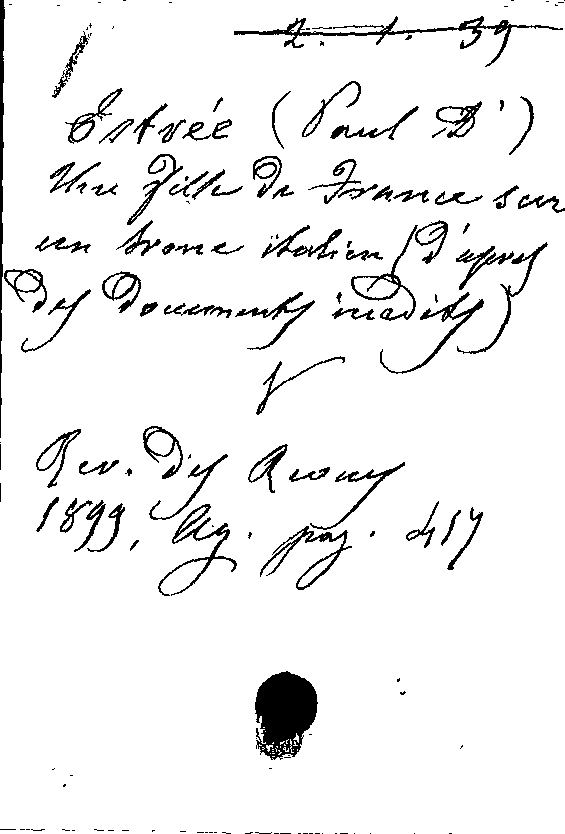 2. 1. 39
Estrée (Paul D')
Une fille de France sur
un trone italien (d'apres
des documents inedits)
Rev. des Revues
1899, Ag. pag. 417